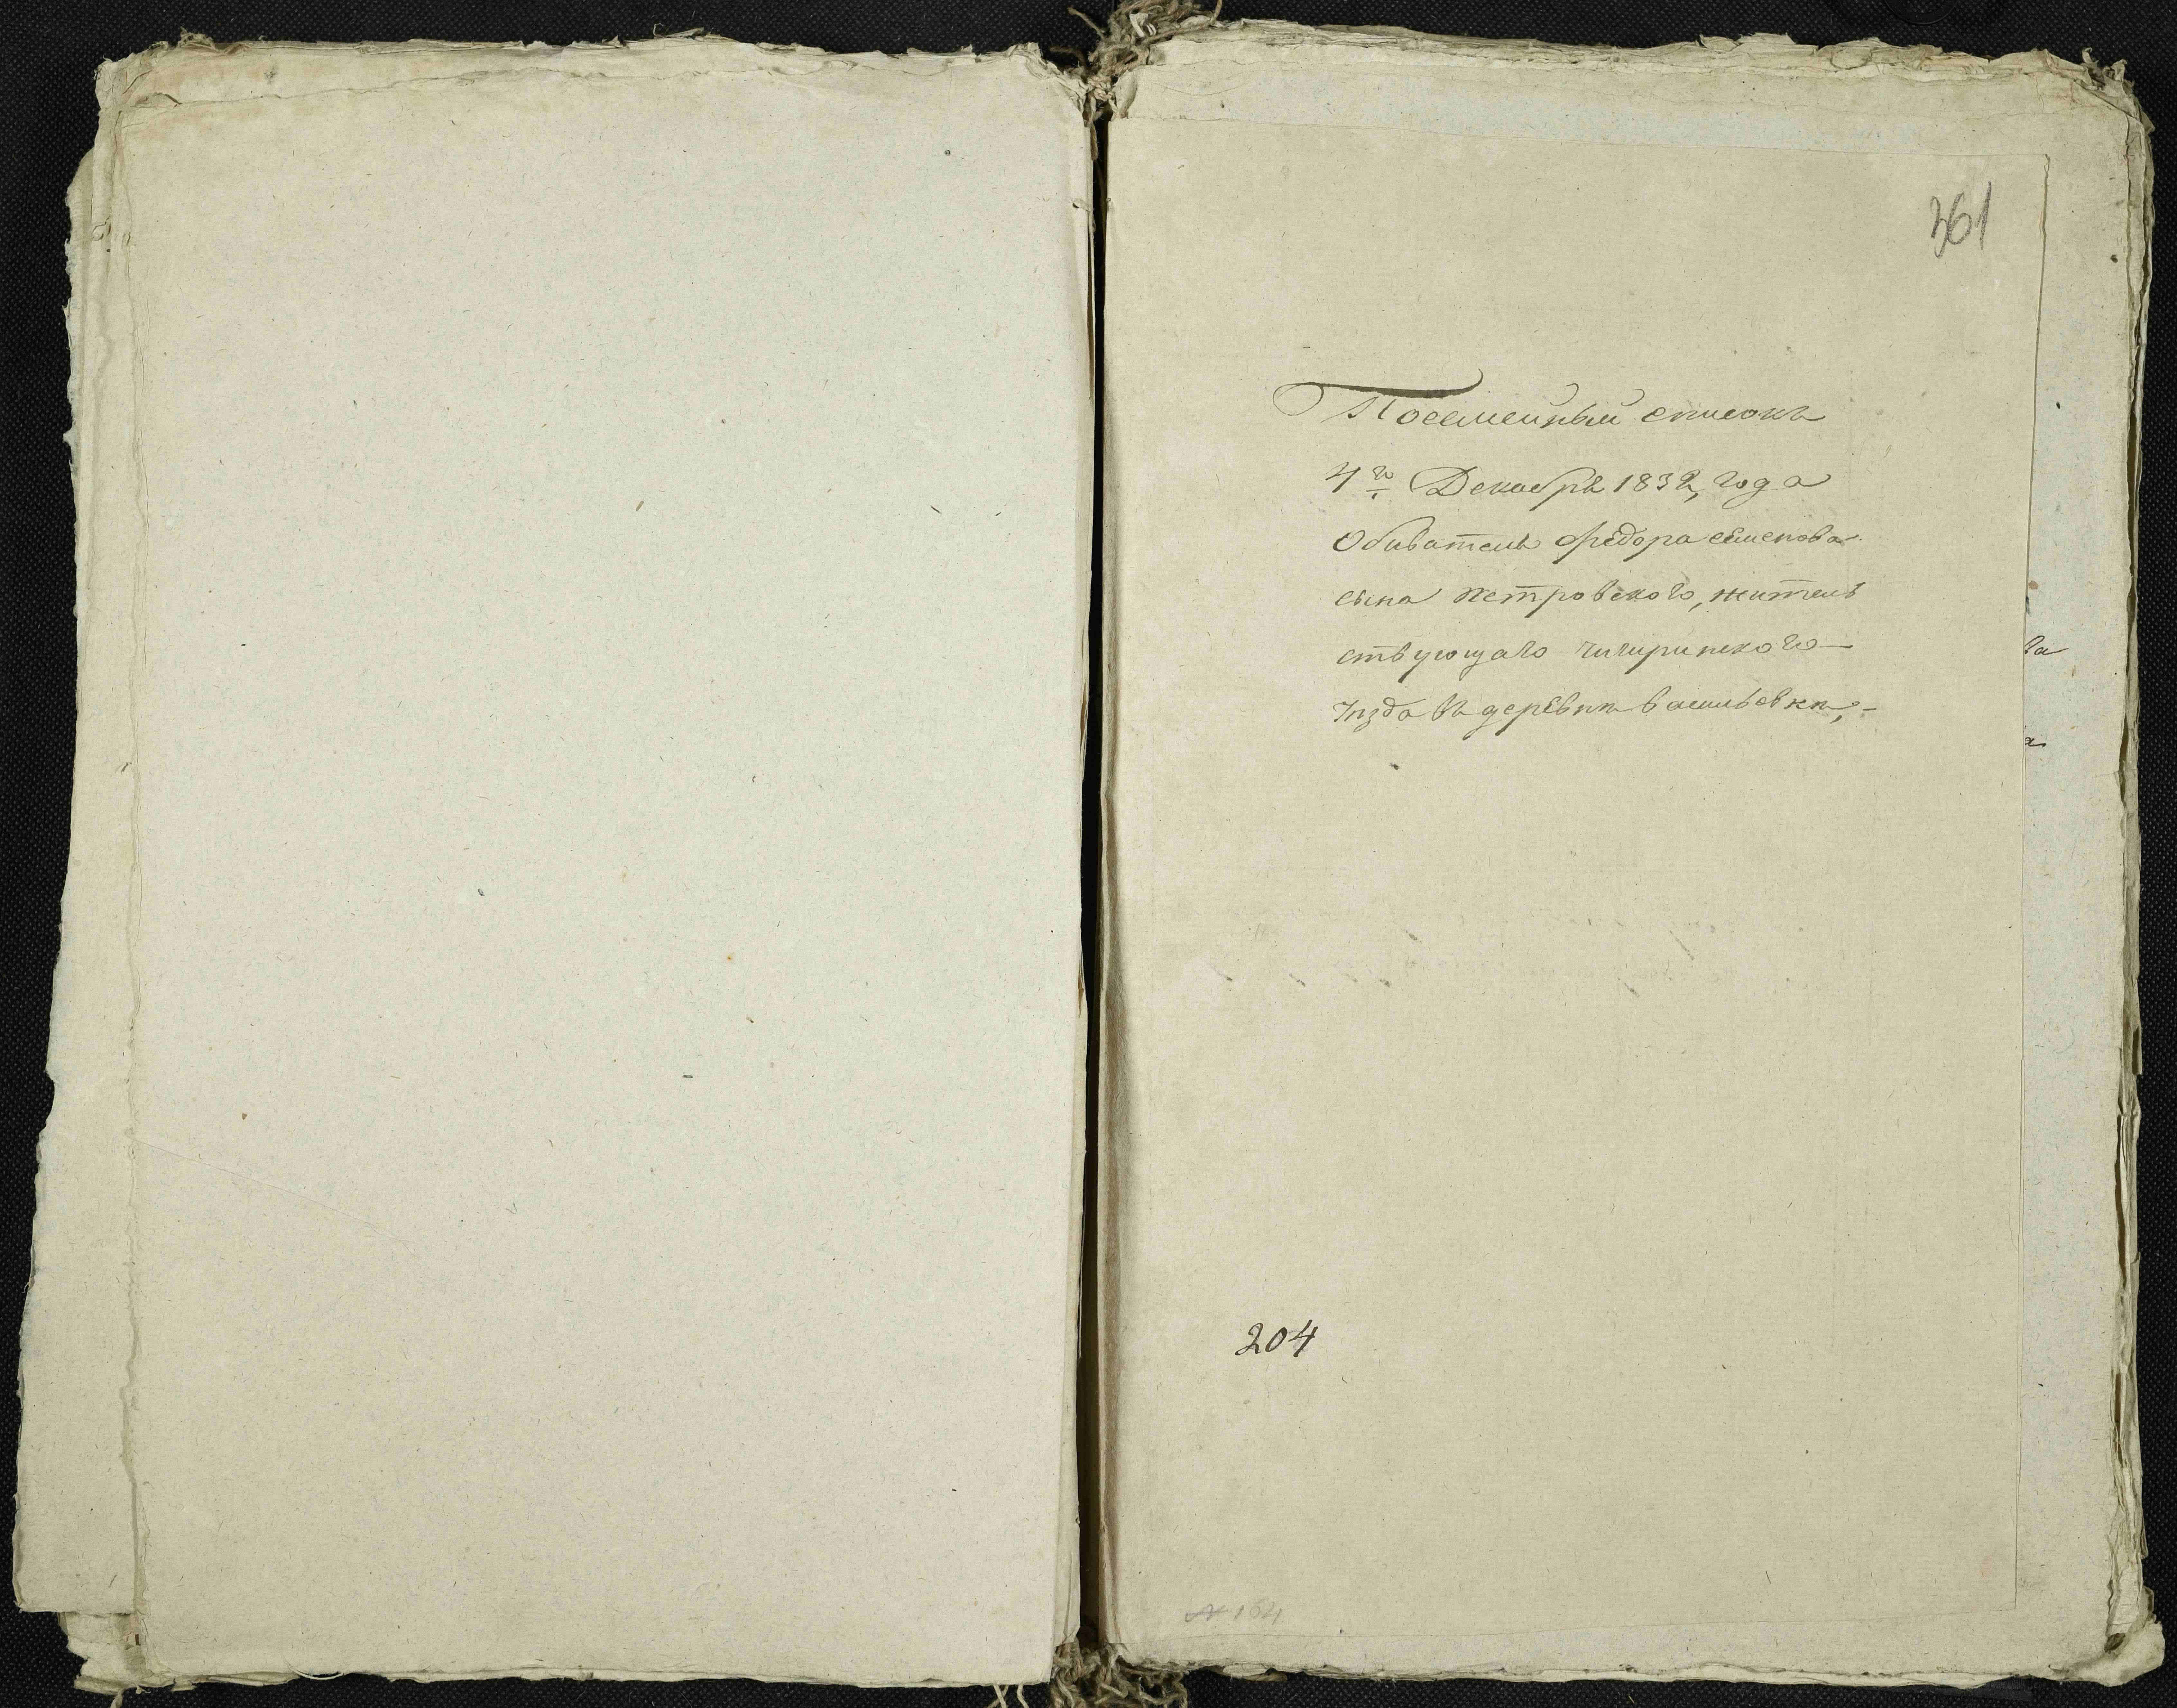 361
Посемейный списокъ
4го Декабря 1832, года
Обывателя Федора семенова
сына Петровского, житель
ствующаго чигиринского
уѣзда въ деревни васильовки,-
ва
а
204
№ 164